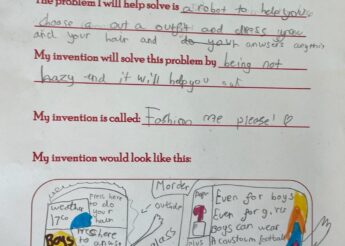 The problem I will help solve is a robot to help you
choose a out a outfit and dress you
and your hair and do your answers anything
My invention will solve this problem by being not
lazy and it will help you out
My invention is called: Fashion me please!
My invention would look like this:
weather
17co
Press here
to do
your
hair
Boys
Press here
to answer
Morder
outside
glass
Paper
plus
Even for boys
Even for girls
Boys can wear
A coustoum football